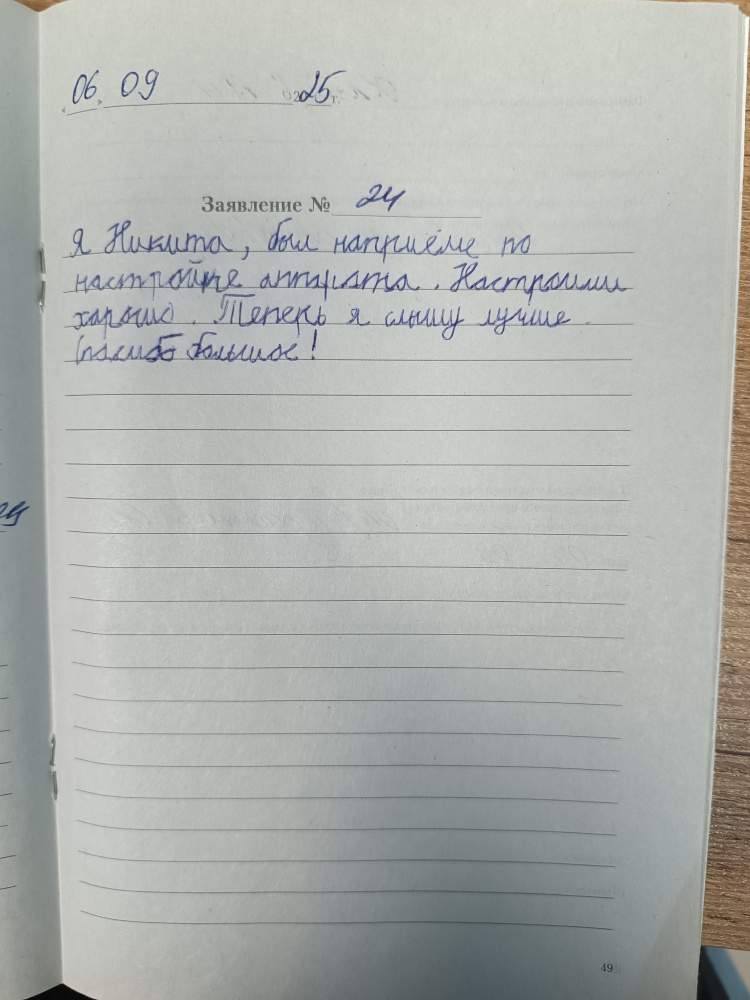 06. 09 2025 г.
Заявление № 24
Я Никита, был наприёме по
настройке аппарата. Настроили
хорошо. Теперь я слышу лучше.
Спасибо большое!
49